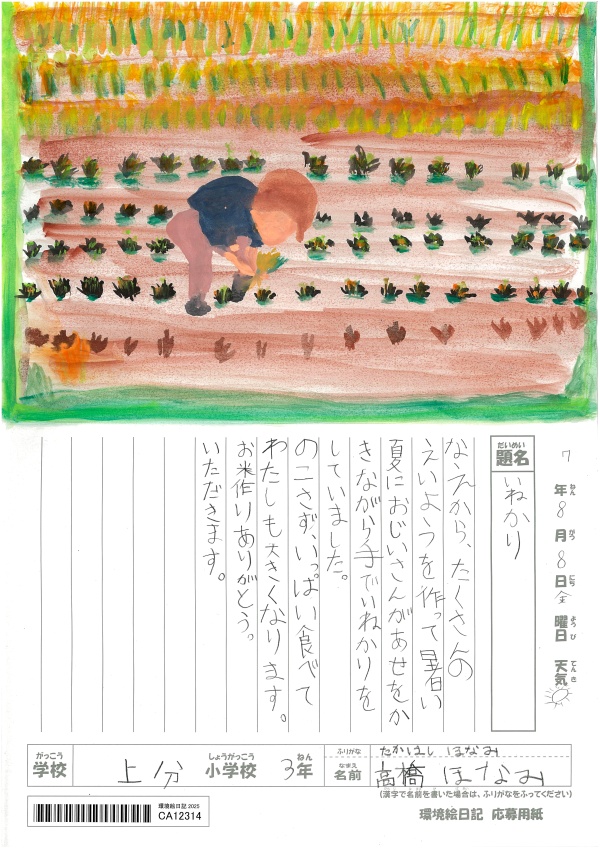 7年8月8日金曜日 天気
ねん がつ にち ようび てんき
だいめい
題名
いねかり
なえから、たくさんの
えいようを作って暑い
夏におじいさんがあせをか
きながら手でいねかりを
していました。
のこさず、いっぱい食べて
わたしも大きくなります。
お米作りありがとう。
いただきます。
がっこう
学校
上分
しょうがっこう
小学校
3年
ねん
ふりがな
たかはし ほなみ
なまえ
名前
高橋 ほなみ
(漢字で名前を書いた場合は、ふりがなをふってください)
環境絵日記 2025
CA12314
環境絵日記 応募用紙